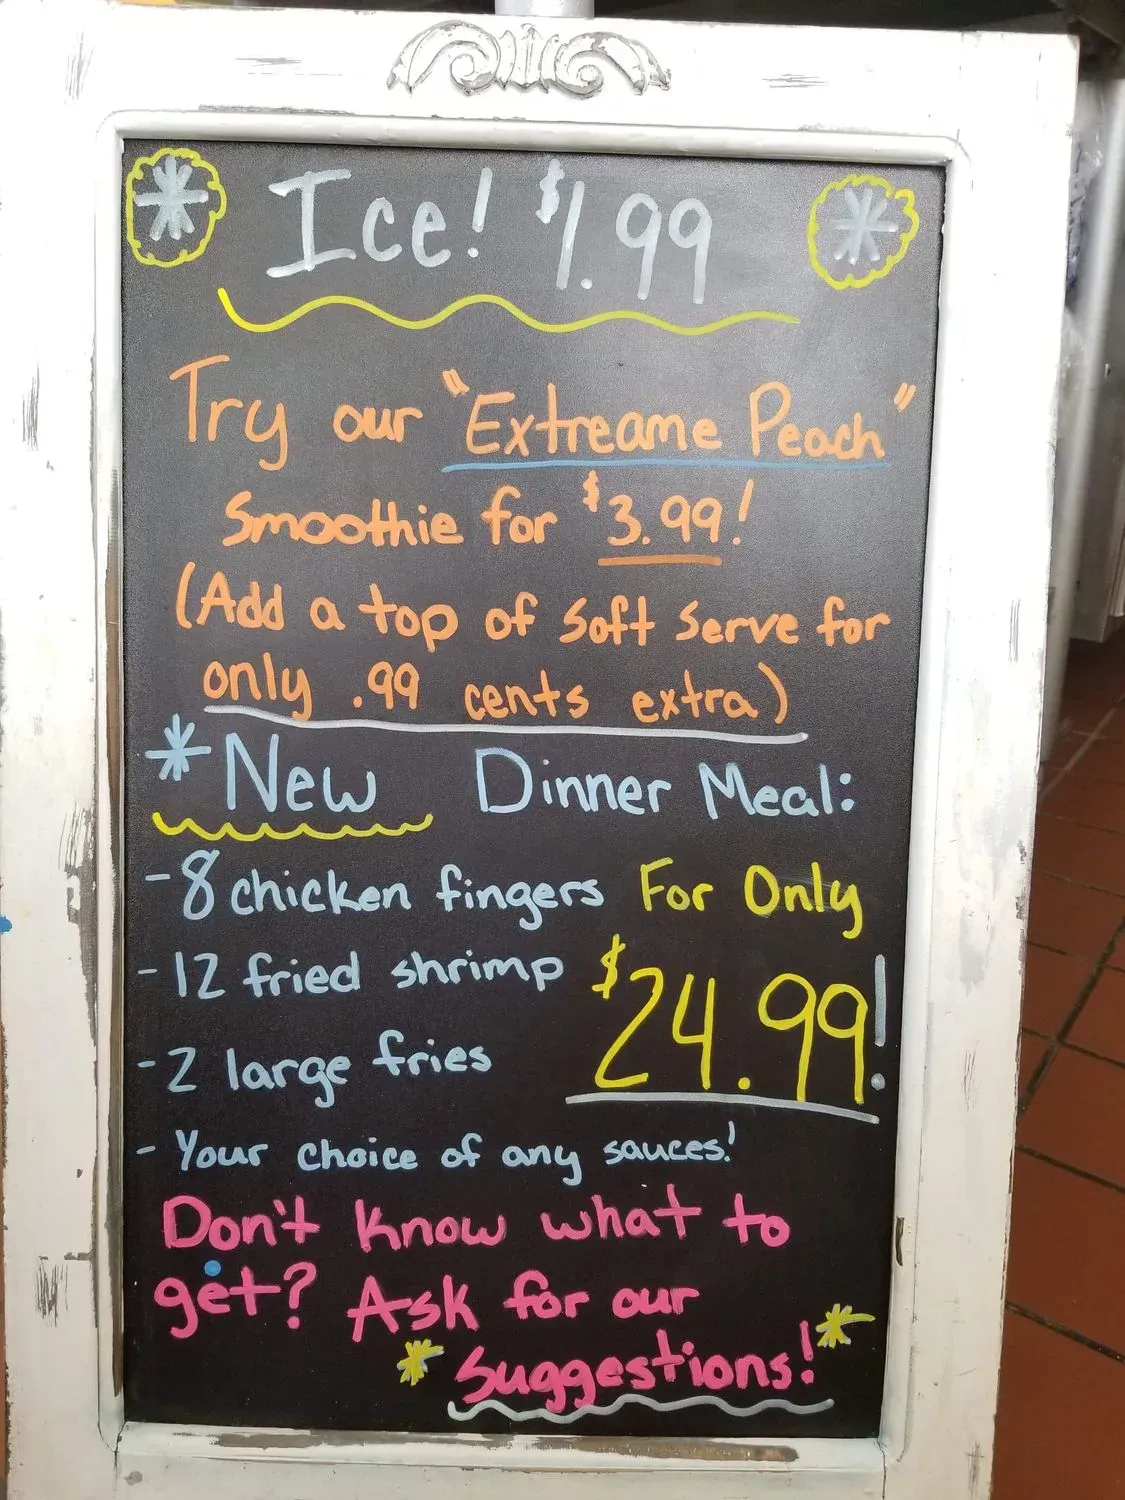 Ice! $1.99
Try our "Extreame Peach"
Smoothie for $3.99!
(Add a top of soft serve for
only .99 cents extra)
*New Dinner Meal:
-8 chicken fingers For Only
-12 fried shrimp $24.99!
-2 large fries
-Your choice of any sauces!
Don't know what to
get? Ask for our
*Suggestions!*